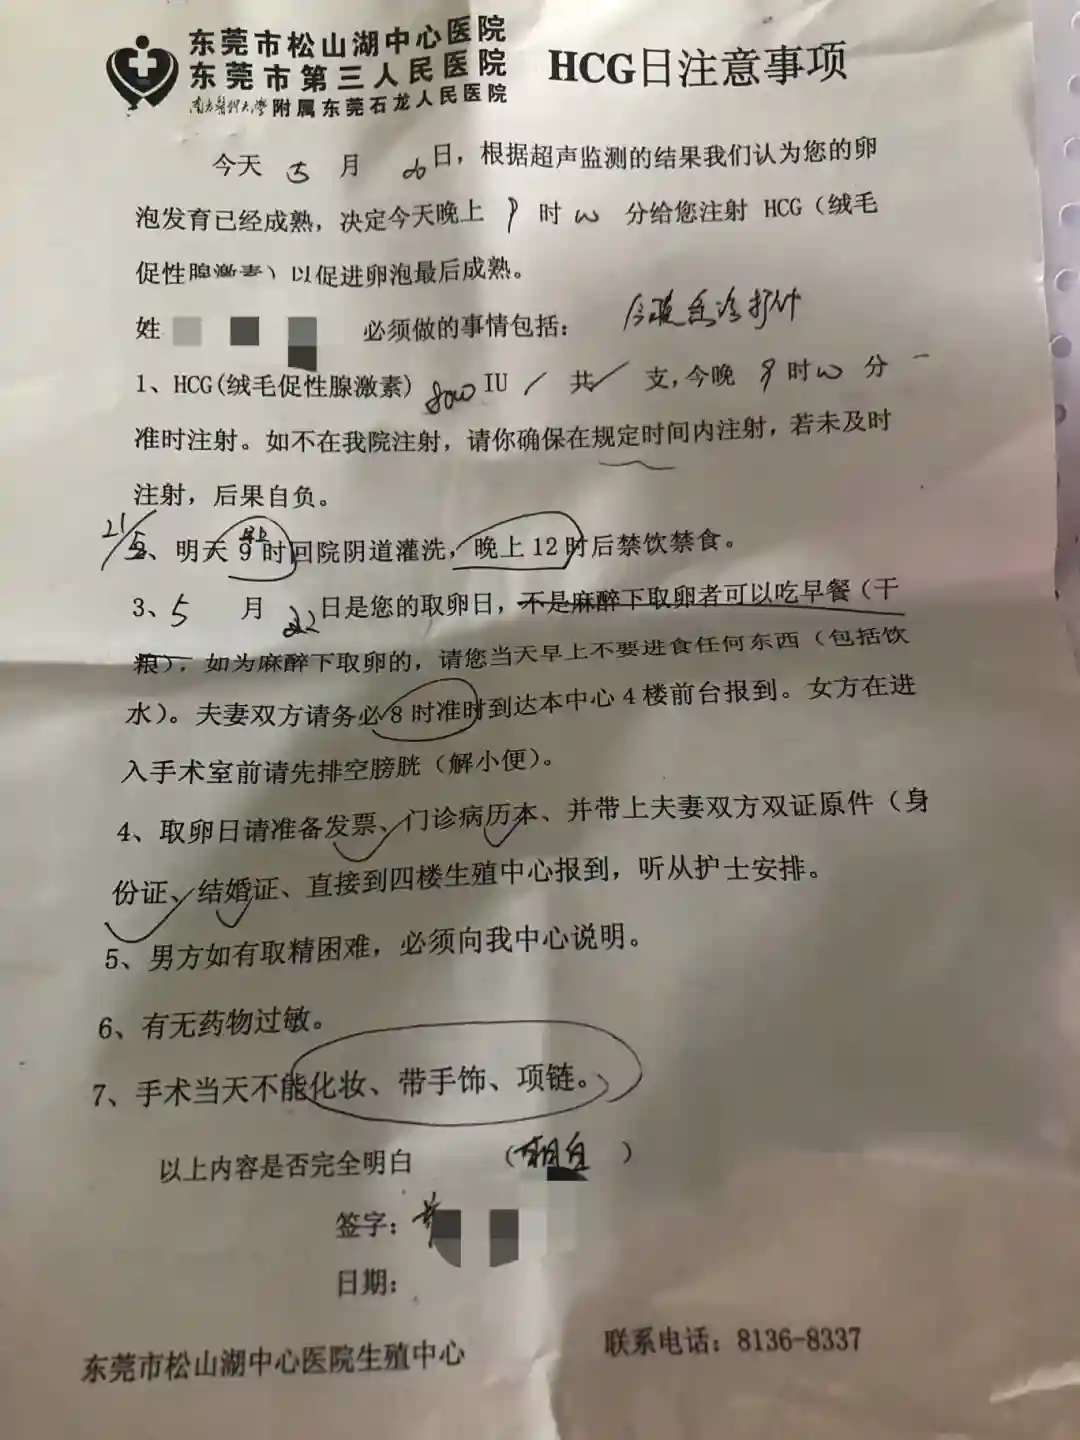 东莞市松山湖中心医院
东莞市第三人民医院
南方医科大学附属东莞石龙人民医院
HCG日注意事项
今天 5 月 20日，根据超声监测的结果我们认为您的卵
泡发育已经成熟，决定今天晚上 9 时 分给您注射 HCG（绒毛
促性腺激素）以促进卵泡最后成熟。
姓 必须做的事情包括： 今晚急诊打针
1、HCG(绒毛促性腺激素) IU 共 支，今晚 9 时 分
准时注射。如不在我院注射，请你确保在规定时间内注射，若未及时
注射，后果自负。
21/5
2、明天 早上 9 时回院阴道灌洗，晚上 12 时后禁饮禁食。
3、5 月 22日是您的取卵日，不是麻醉下取卵者可以吃早餐（干
粮），如为麻醉下取卵的，请您当天早上不要进食任何东西（包括饮
水）。夫妻双方请务必 8 时准时到达本中心 4 楼前台报到。女方在进
入手术室前请先排空膀胱（解小便）。
4、取卵日请准备发票、门诊病历本、并带上夫妻双方双证原件（身
份证、结婚证、直接到四楼生殖中心报到，听从护士安排。
5、男方如有取精困难，必须向我中心说明。
6、有无药物过敏。
7、手术当天不能化妆、带手饰、项链。
以上内容是否完全明白 （明白）
签字：
日期：
东莞市松山湖中心医院生殖中心 联系电话：8136-8337